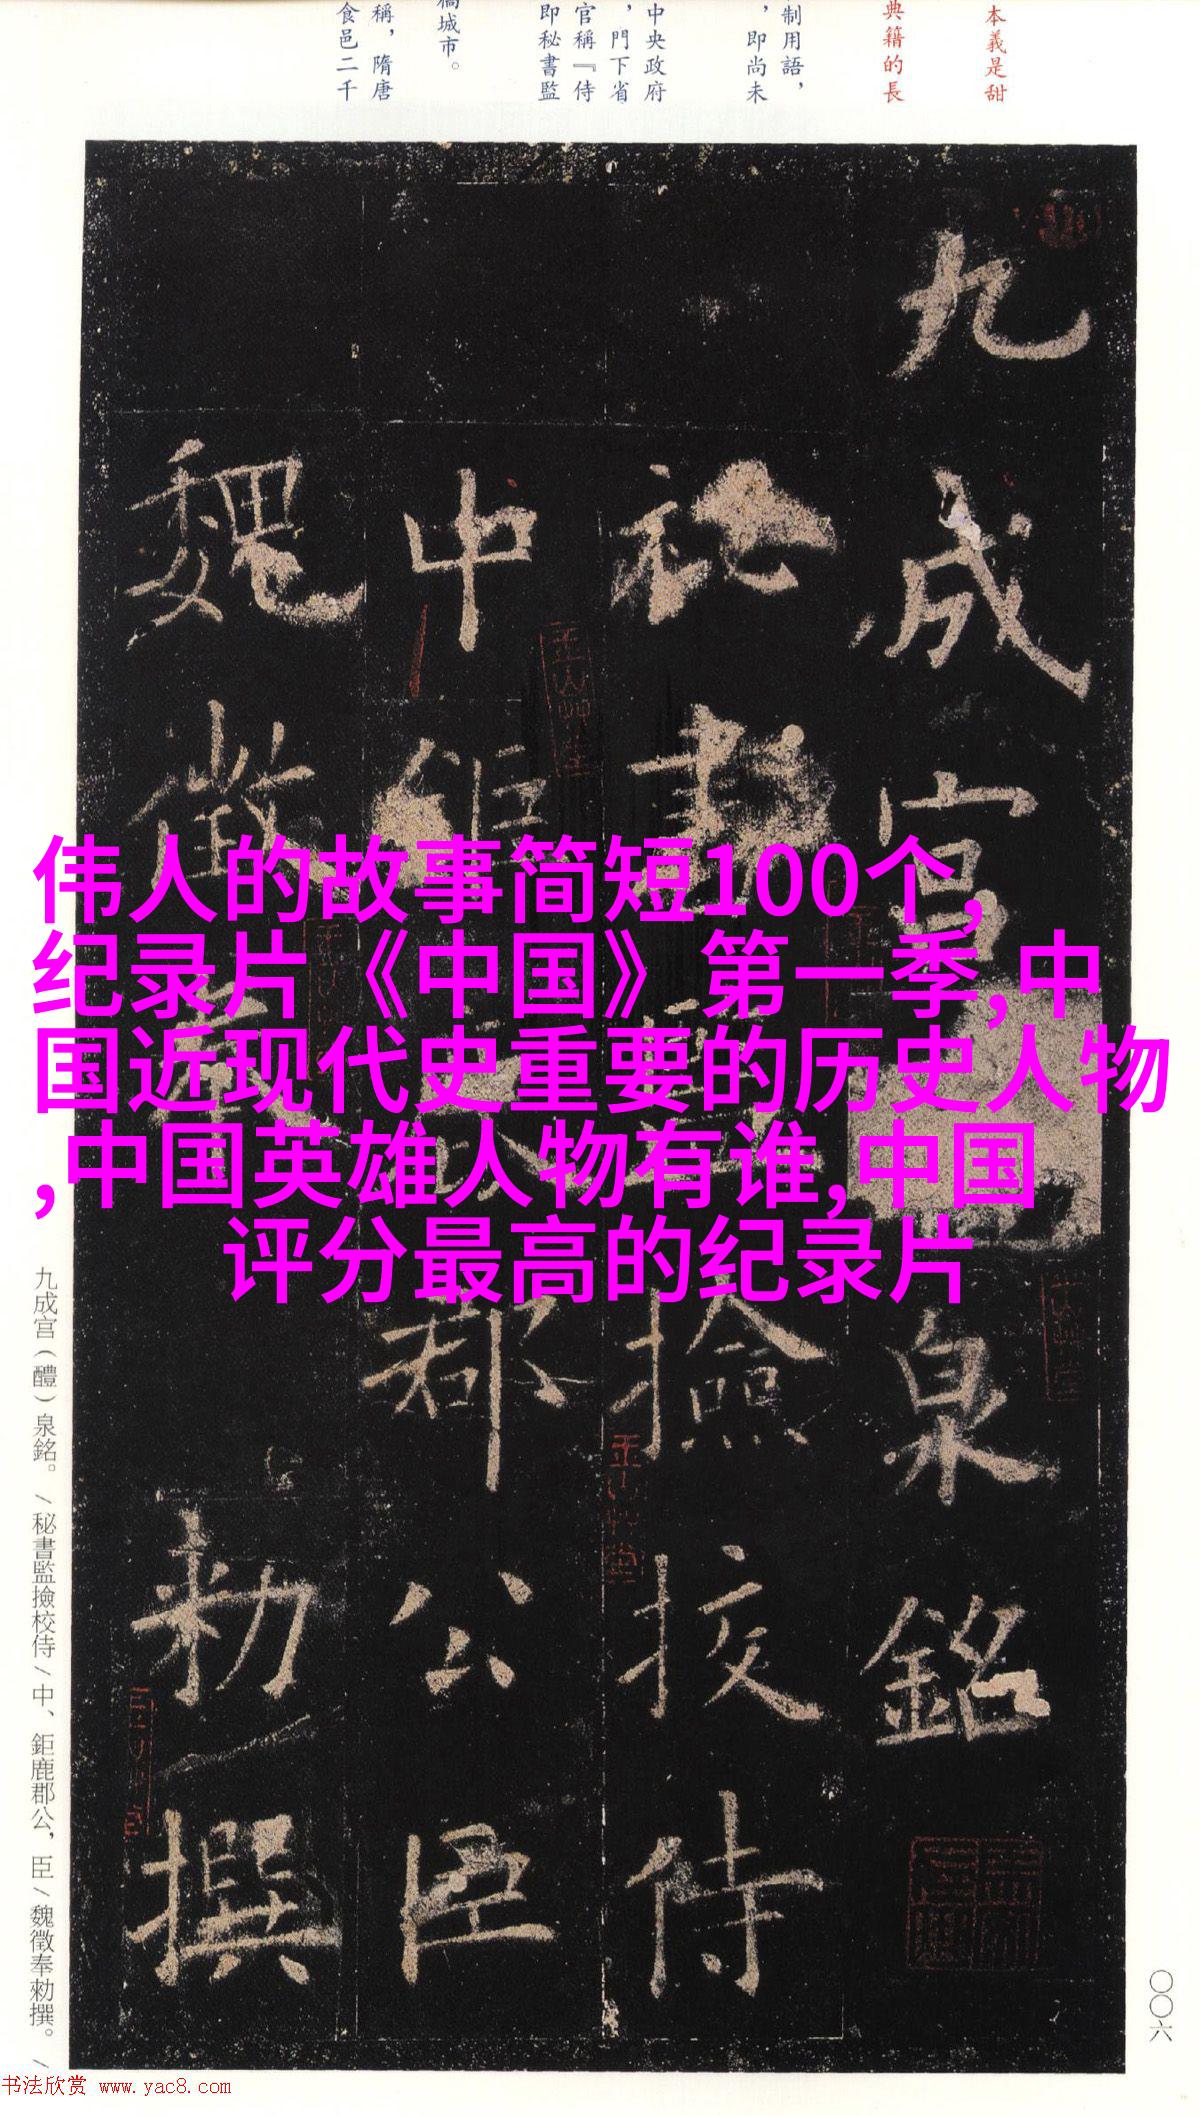 本義是甜
典籍的長
制用語，
，即尚未
中央政府
，門下省
官稱『侍
即秘書監
城市。
稱，隋唐
食邑二千
九成宮
泉銘
秘書
撿挍侍
中
郡公臣
魏徵
勑撰
伟人的故事简短100个,
纪录片《中国》第一季,中
国近现代史重要的历史人物
,中国英雄人物有谁,中国
评分最高的纪录片
九成宮（醴）泉銘。/秘書監撿校侍/中、鉅鹿郡公，臣/魏徵奉勑撰。/
〇〇六
书法欣赏 www.yac8.com